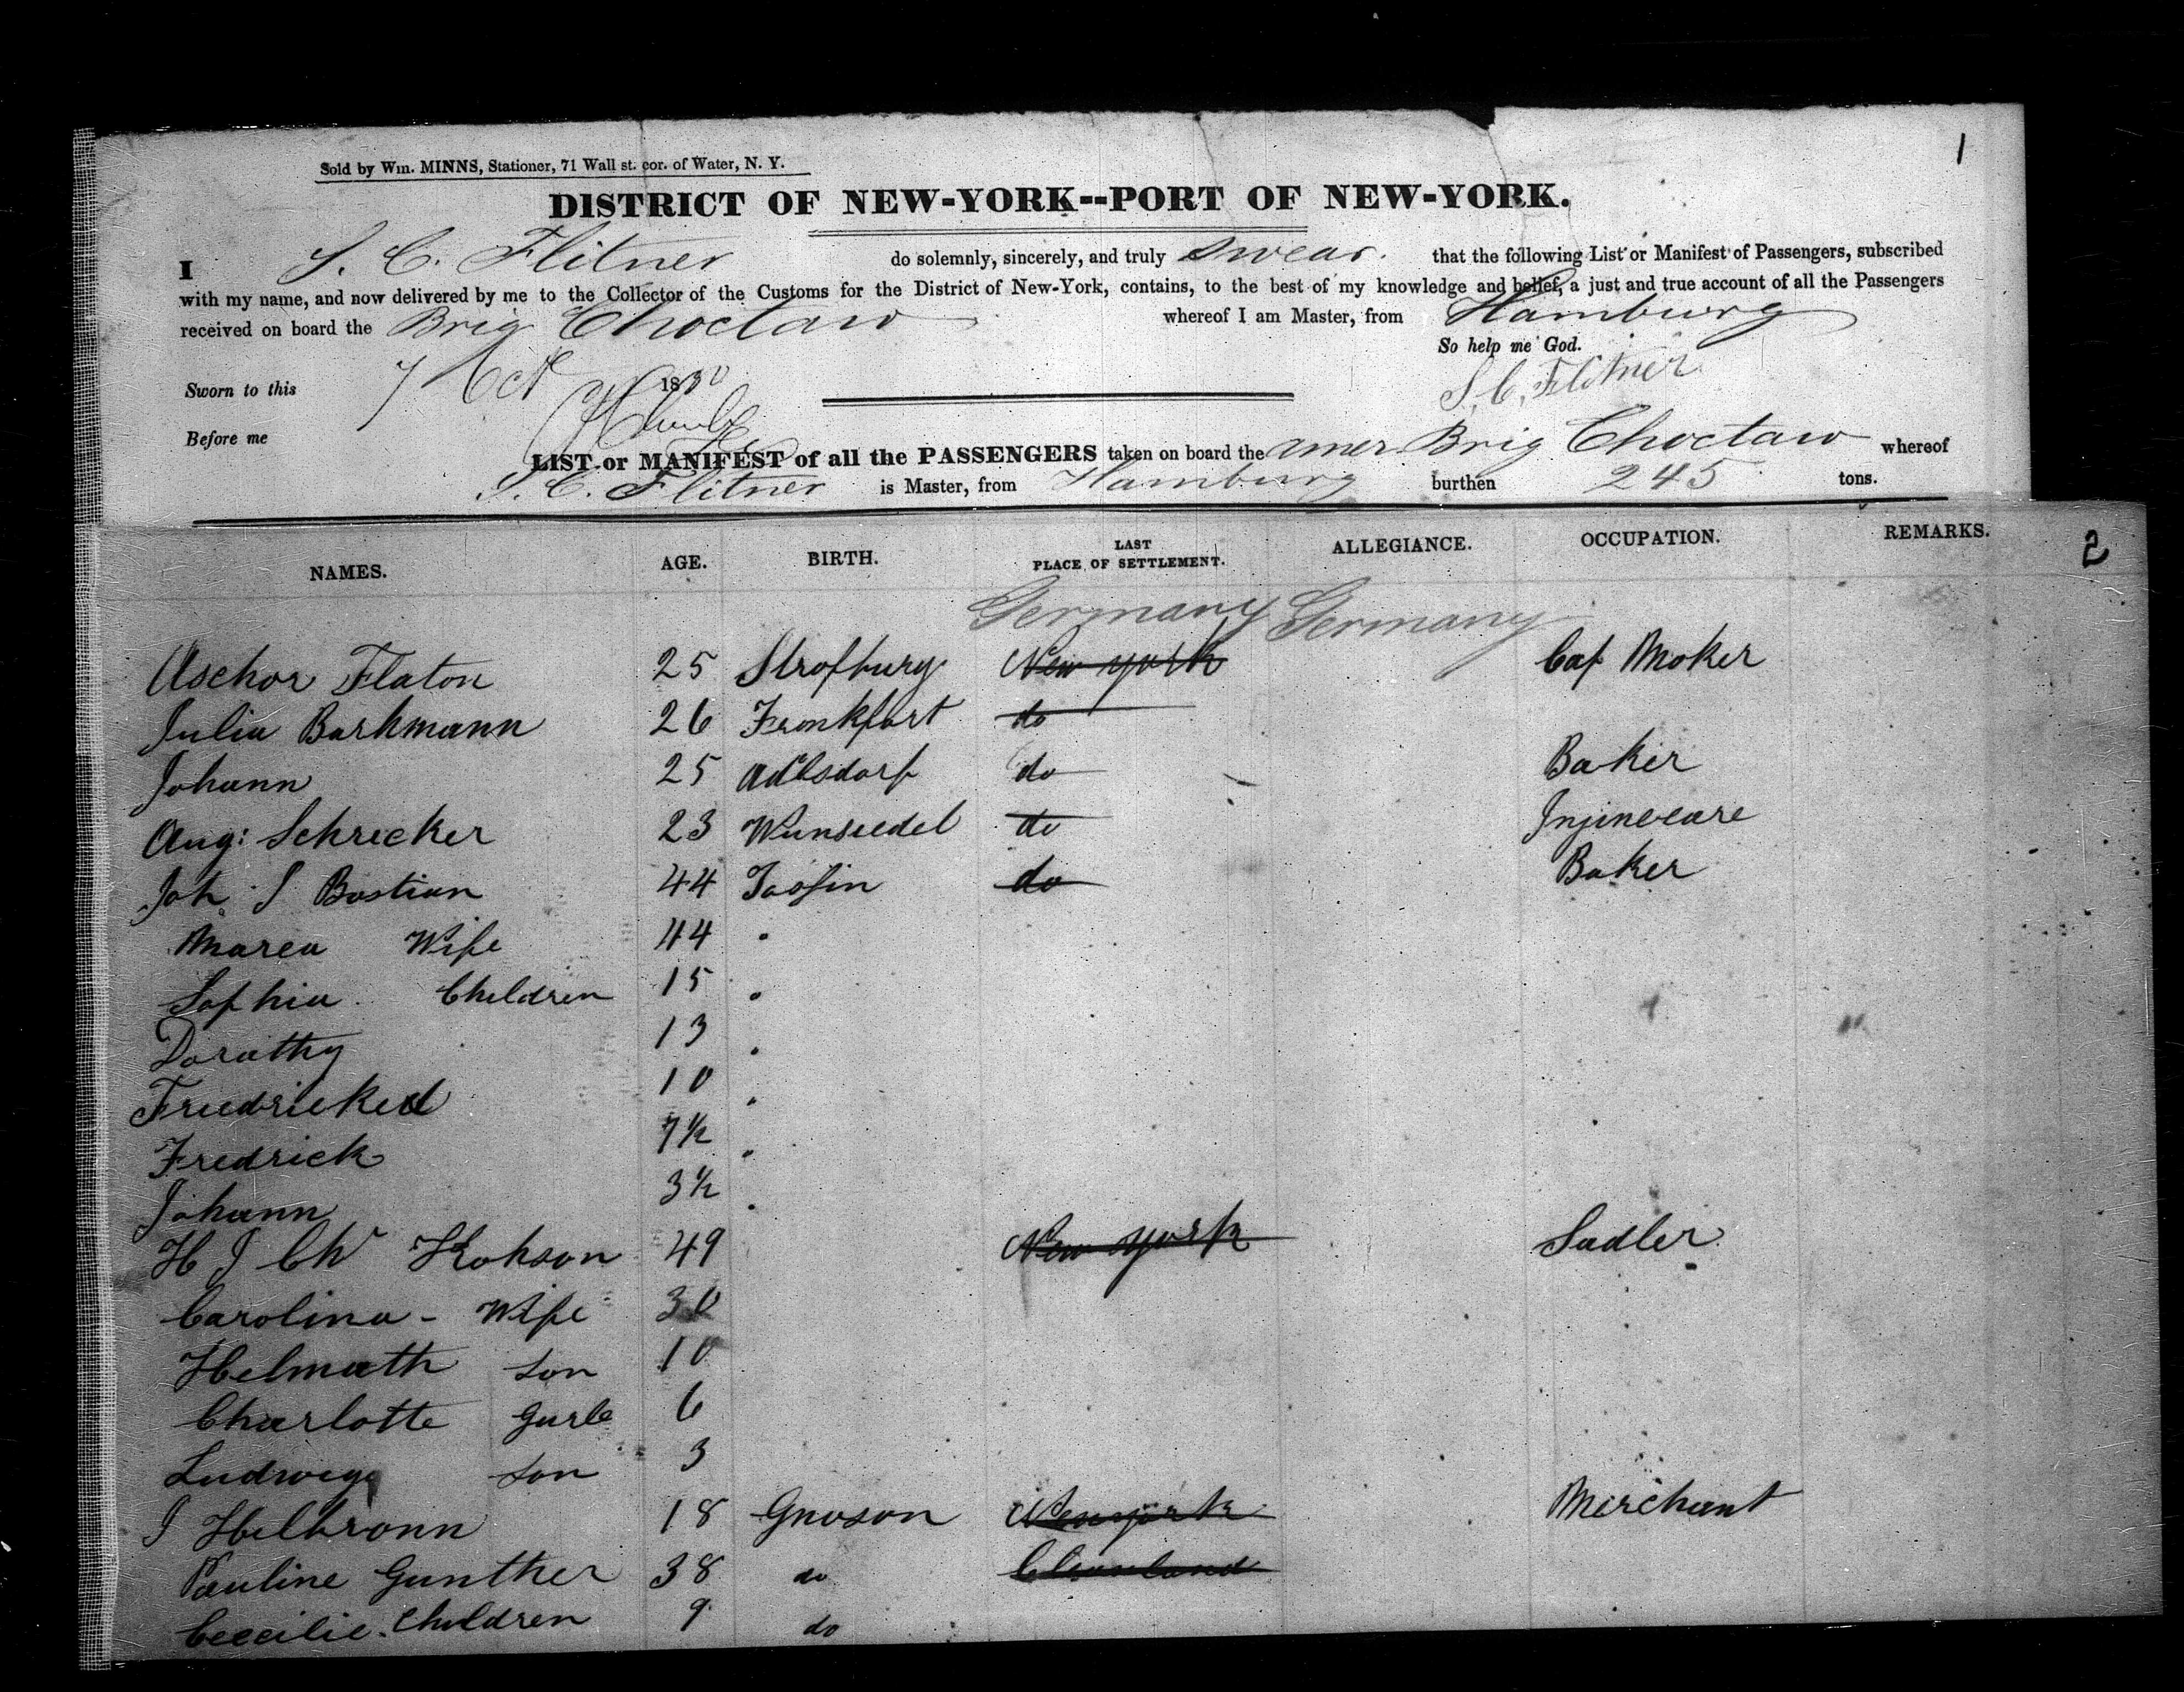 1
Sold by Wm. MINNS, Stationer, 71 Wall st. cor. of Water, N. Y.
DISTRICT OF NEW-YORK--PORT OF NEW-YORK.
I S. C. Flitner do solemnly, sincerely, and truly swear. that the following List or Manifest of Passengers, subscribed
with my name, and now delivered by me to the Collector of the Customs for the District of New-York, contains, to the best of my knowledge and belief, a just and true account of all the Passengers
received on board the Brig Choctaw whereof I am Master, from Hamburg
So help me God.
Sworn to this 7 Oct 18 S. C. Flitner
Before me
LIST or MANIFEST of all the PASSENGERS taken on board the Amer Brig Choctaw whereof
S. C. Flitner is Master, from Hamburg burthen 245 tons.
NAMES. AGE. BIRTH. LAST PLACE OF SETTLEMENT. ALLEGIANCE. OCCUPATION. REMARKS. 2
Germany Germany
Aschor Flaton 25 New york Cap Moker
Julia Barkmann 26 Frankfort do
Johann 25 Adlsdorf do Baker
Aug: Schrecker 23 Wunsiedel do Injineeare
Joh J Bastian 44 do Baker
Marea Wife 44
Sophia Children 15
Dorathy 13
Friedricked 10
Fredrick 7½
Johann 3½
H J Chr 49 New york Sadler
Carolina - Wife 30
Helmuth son 10
Charlotte Gurle 6
Ludwig son 3
J Heilbronn 18 Gnoson Newyork Merchant
Pauline Gunther 38 do Cleaveland
Ceccilie. Children 9 do